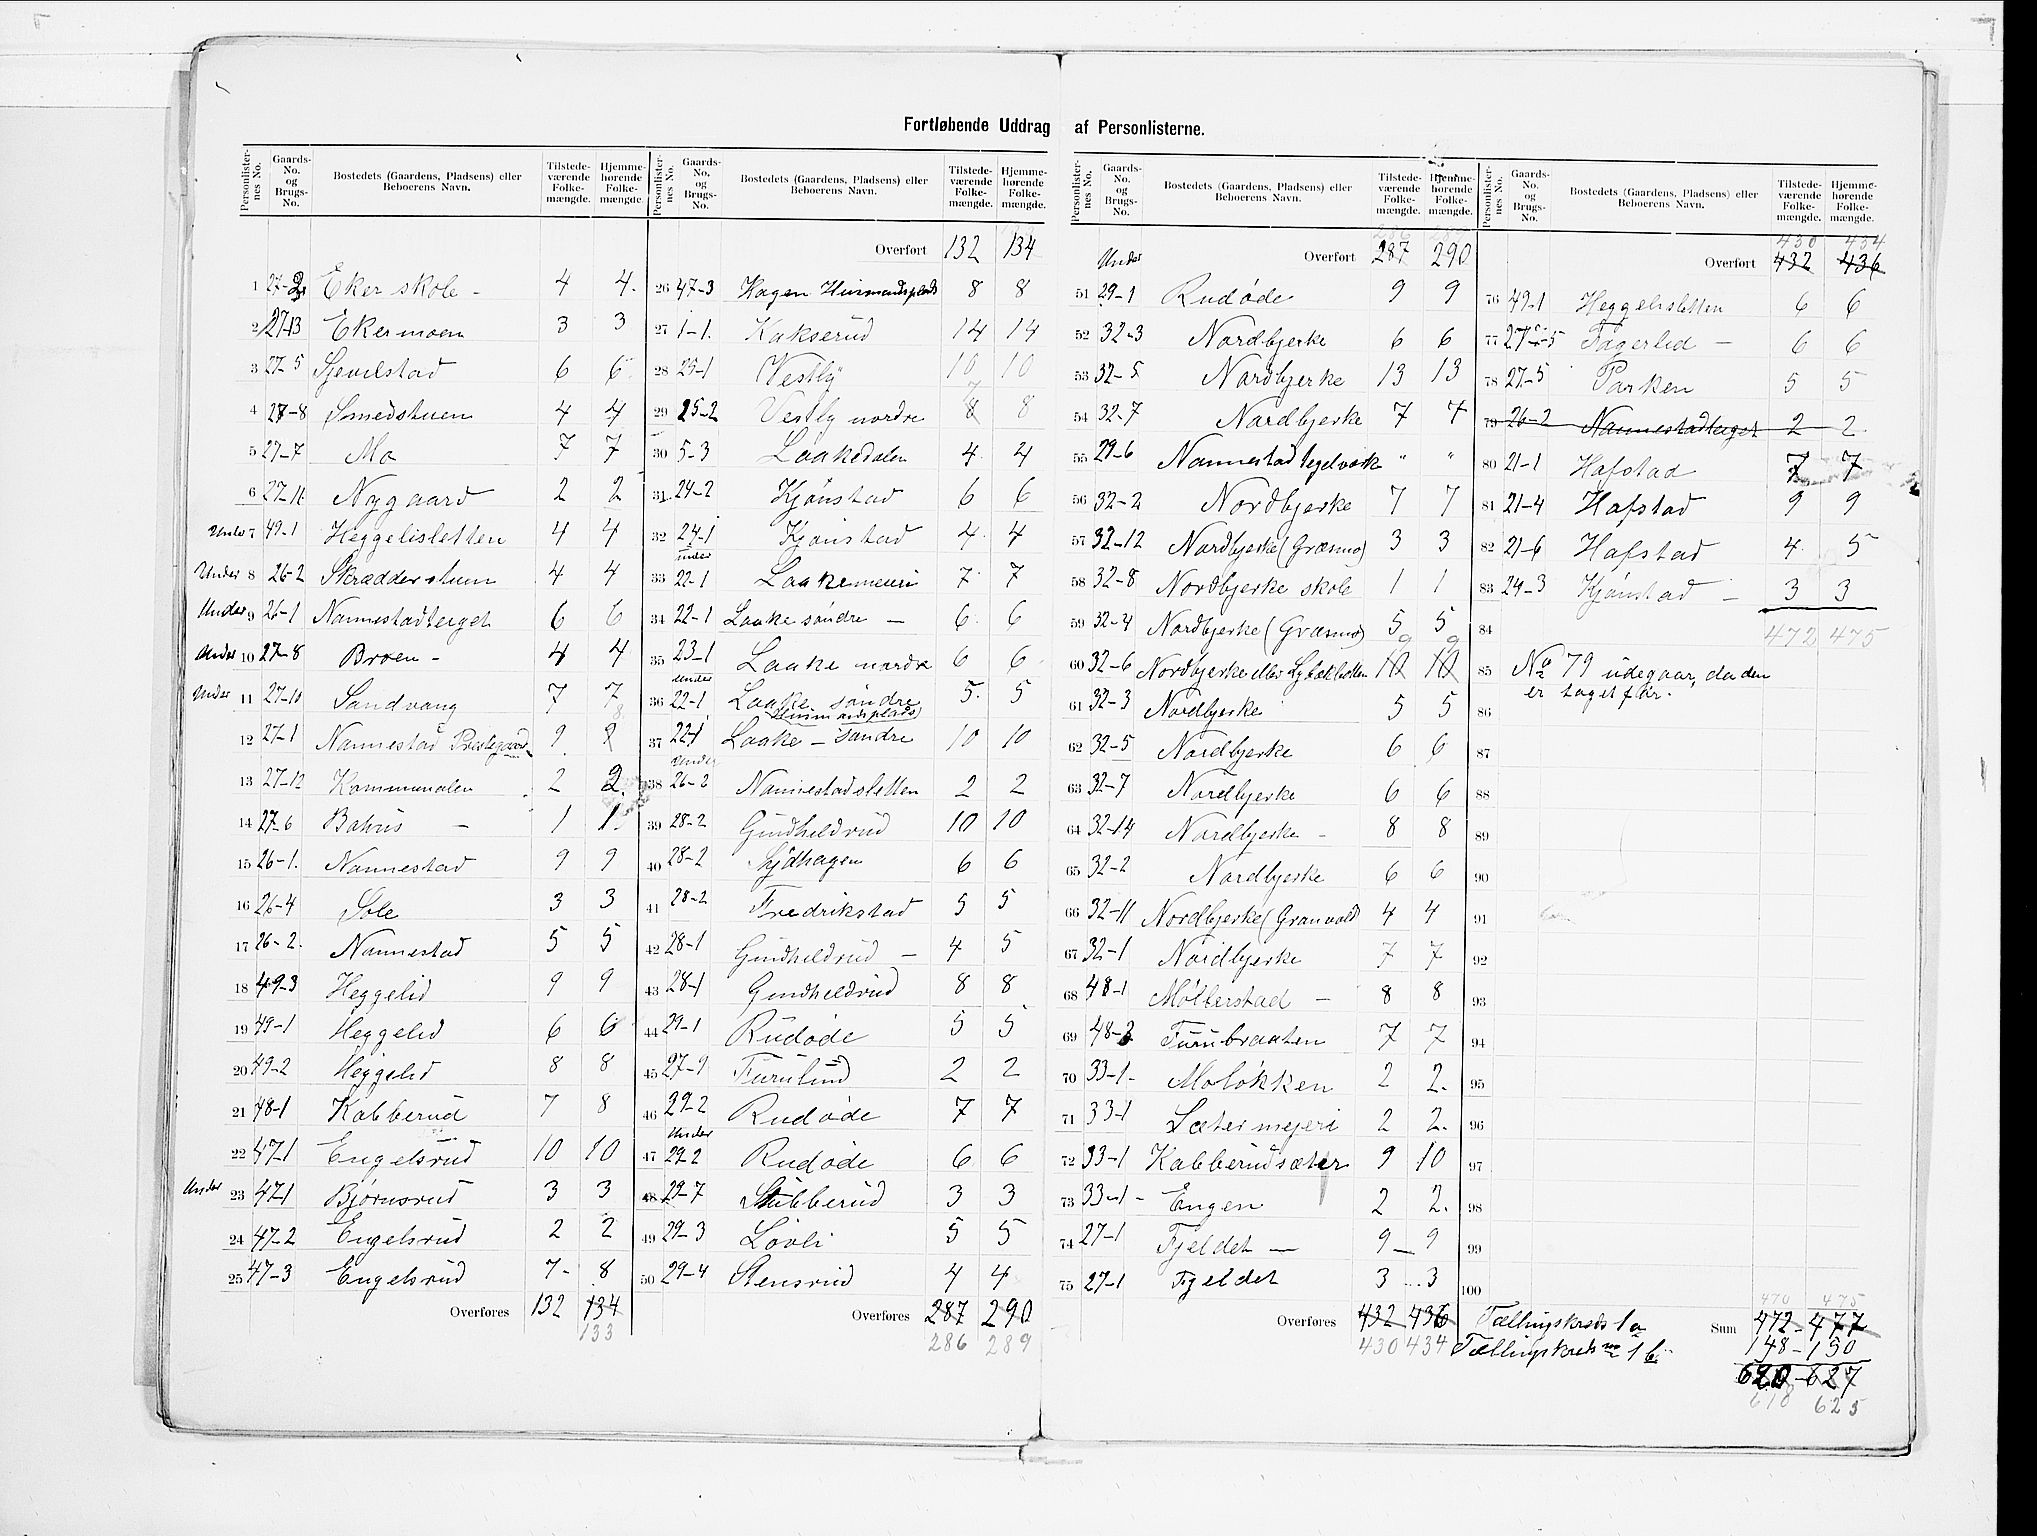 Fortløbende Uddrag af Personlisterne.
Personlisternes No. Gaards-No. og Brugs-No. Bostedets (Gaardens, Pladsens) eller Beboerens Navn. Tilstedeværende Folkemængde. Hjemmehørende Folkemængde.
1 27-2 Eker skole - 4 4.
2 27-13 Ekermoen 3 3
3 27-5 Sjevelstad 6 6
4 27-8 Smedstuen 4 4
5 27-7 Mo 7 7
6 27-16 Nygaard 2 2
Under 7 49-1 Heggelisletten 4 4
Under 8 26-2 Skrædderstuen 4 4
Under 9 26-1 Nannestadteiget 6 6
Under 10 27-8 Broen - 4 4
Under 11 27-10 Sandvang 7 7
12 27-1 Nannestad Prestegaard 9 9 8
13 27-12 Kommunalen 2 2
14 27-6 Bahus - 1 1
15 26-1. Nannestad 9 9
16 26-4 Sole 3 3
17 26-2. Nannestad 5 5
18 49-3 Heggelid 9 9
19 49-1 Heggelid 6 6
20 49-2 Heggelid 8 8
21 48-1 Kabberud 7 8
22 47-1 Engelsrud 10 10
Under 23 47-1 Bjørnsrud 3 3
24 47-2 Engelsrud 2 2
25 47-3 Engelsrud 7- 8
Overføres 132 134
133
Personlisternes No. Gaards-No. og Brugs-No. Bostedets (Gaardens, Pladsens) eller Beboerens Navn. Tilstedeværende Folkemængde. Hjemmehørende Folkemængde.
Overført 132 134
26 47-3 Hagen Husmandsplads 8 8
27 1-1. Kakserud 14 14
28 25-1 Vestby 10 10
29 25-2 Vestby nordre 8 7 8
30 5-3 Laakedalen 4 4
31. 24-2 Kjønstad 6 6
32 24-1 Kjønstad 4 4
under
33 22-1 Laakemeieri 7 7
34 22-1 Laake søndre - 6 6
35 23-1 Laake nordre 6 6
under
36 22-1 Laake søndre 5 5
(Husmandsplads)
37 22-1 Laake - søndre 10 10
Under
38 26-2 Nannestadsletten 2 2
39 28-2 Gundheldrud 10 10
40 28-2 Sydhagen 6 6
41 28-2 Fredrikstad 5 5
42 28-1 Gundheldrud - 4 5
43 28-1 Gundheldrud 8 8
44 29-1 Rudøde 5 5
45 27-9 Furulund 2 2
46 29-2 Rudøde 7 7
Under
47 29-2 Rudøde 6 6
48 29-7 Stubberud 3 3
49 29-3 Løvli 5 5
50 29-4 Stensrud 4 4
Overføres 287 290
286 289
Personlisternes No. Gaards-No. og Brugs-No. Bostedets (Gaardens, Pladsens) eller Beboerens Navn. Tilstedeværende Folkemængde. Hjemmehørende Folkemængde.
Under Overført 287 290
51 29-1 Rudøde 9 9
52 32-3 Nordbjerke 6 6
53 32-5 Nordbjerke 13 13
54 32-7 Nordbjerke 7 7
55 29-6 Nannestad teglværk " "
56 32-2 Nordbjerke 7 7
57 32-12 Nordbjerke (Græsmo) 3 3
58 32-8 Nordbjerke skole 1 1
59 32-4 Nordbjerke (Græsmo) 5 5
9 9
60 32-6 Nordbjerke eller 10 10
61 32-3 Nordbjerke 5 5
62 32-5 Nordbjerke 6 6
63 32-7 Nordbjerke 6 6
64 32-14 Nordbjerke - 8 8
65 32-2 Nordbjerke 6 6
66 32-11 Nordbjerke (Granvold 4 4
67 32-1 Nordbjerke 7 7
68 48-1 Møllerstad - 8 8
69 48-2 Furubraaten 7 7
70 33-1- Moløkken 2 2.
71 33-1 Sæter mejeri 2 2.
72 33-1 Kabberudsæter 9 10
73 33-1- Engen 2 2.
74 27-1 Fjeldet - 9 - 9
75 27-1 Fjeldet 3 .. 3
Overføres 432 436
430 434
Personlisternes No. Gaards-No. og Brugs-No. Bostedets (Gaardens, Pladsens) eller Beboerens Navn. Tilstedeværende Folkemængde. Hjemmehørende Folkemængde.
430 434
Overført 432 436
76 49-1 Heggelisletten 6 6
77 27-5 Fagerlid - 6 6
78 27-5 Parken 5 5
79 26-2 Nannestadteiget 2 2
80 21-1 Hafstad 7 7
81 21-4 Hafstad 9 9
82 21-6 Hafstad 4 5
83 24-3 Kjønstad - 3 3
84 472 475
85 No 79 udegaar, da den
er taget før.
86
87
88
89
90
91
92
93
94
95
96
97
98
99
100
470 475
Tællingskreds 1a Sum 472 - 477
Tællingskreds no 1b 148 - 150
620 - 627
618 625